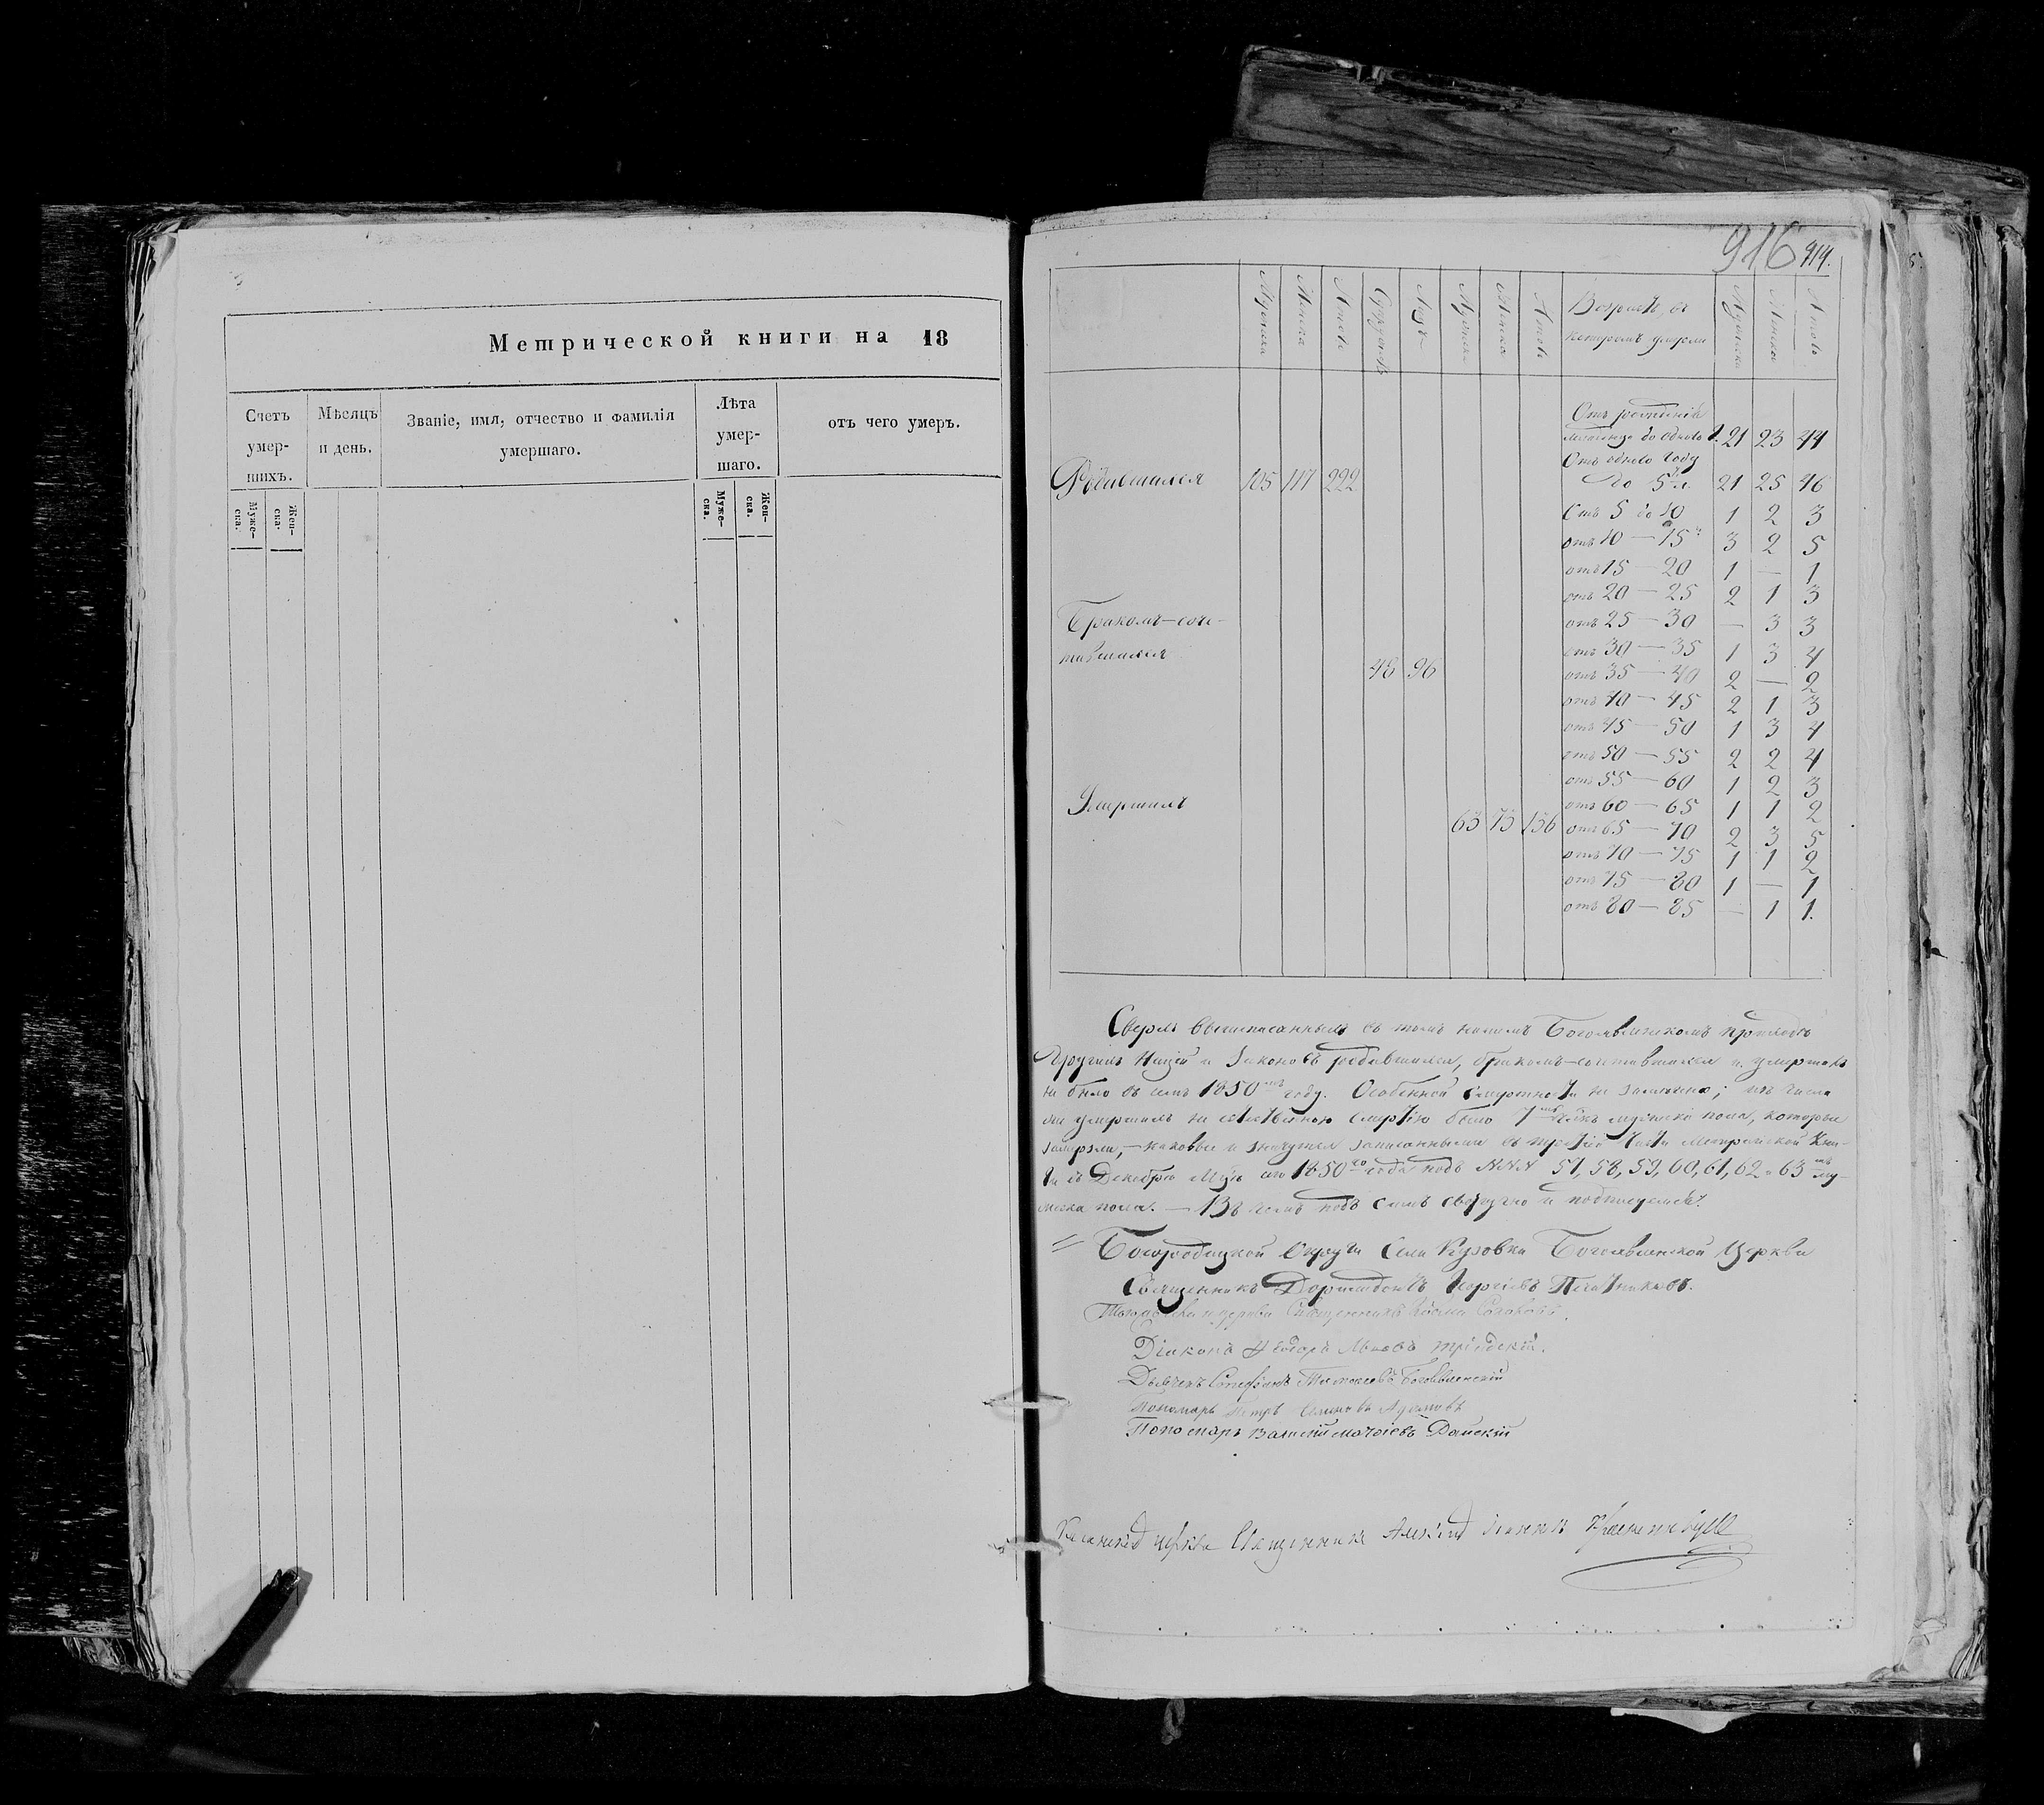 Метрической книги на 18
Счетъ умер-шихъ.
Мѣсяцъ и день.
Званіе, имя, отчество и фамилія умершаго.
Лѣта умер-шаго.
отъ чего умеръ.
Муже-ска.
Жен-ска.
Муже-ска.
Жен-ска.
916 914.
Мужеска Женска Итого Супружествъ Лицъ Мужеска Женска Итого Возрастъ, въ Мужеска Женска Итого
которомъ умерли
Отъ рожденія
младенца до одного г. 21 23 44
Отъ одного году
Родившихся 105 117 222 до 5 л. 21 25 46
Отъ 5 до 10 1 2 3
отъ 10 — 15 3 2 5
отъ 15 — 20 1 — 1
отъ 20 — 25 2 1 3
Бракомъ-соче- отъ 25 — 30 — 3 3
тавшихся отъ 30 — 35 1 3 4
48 96 отъ 35 — 40 2 — 2
отъ 40 — 45 2 1 3
отъ 45 — 50 1 3 4
отъ 50 — 55 2 2 4
отъ 55 — 60 1 2 3
Умершихъ отъ 60 — 65 1 1 2
63 73 136 отъ 65 — 70 2 3 5
отъ 70 — 75 1 1 2
отъ 75 — 80 1 — 1
отъ 80 — 85 — 1 1.
Сверхъ вышеписанныхъ въ томъ нашемъ Богоявленскомъ приходѣ
другихъ Націй и Законовъ родившихся, бракомъ-сочетавшихся и умершихъ
не было въ семъ 1850мъ году. Особенной смертности не замечено; изъ числа
умершихъ не естественною смертію было 7 мужеска пола, которые
замерзли, — каковые и значутся записанными въ третіей части Метрической Кни-
ги въ Декабрѣ 1850го года подъ NNN 57, 58, 59, 60, 61, 62 и 63 му-
жеска пола. — Въ чемъ подъ симъ и подписуемся.
Богородицкой Округи Села Кузовки Богоявленской Церкви
Священникъ Доримедонтъ Георгіевъ
церкви Священникъ
Діаконъ Ѳеодоръ Львовъ
Дьячекъ Стефанъ Богоявленскій
Пономарь Петръ
Пономарь Василій Донскій
церкви Священникъ Алексій Іоанновъ